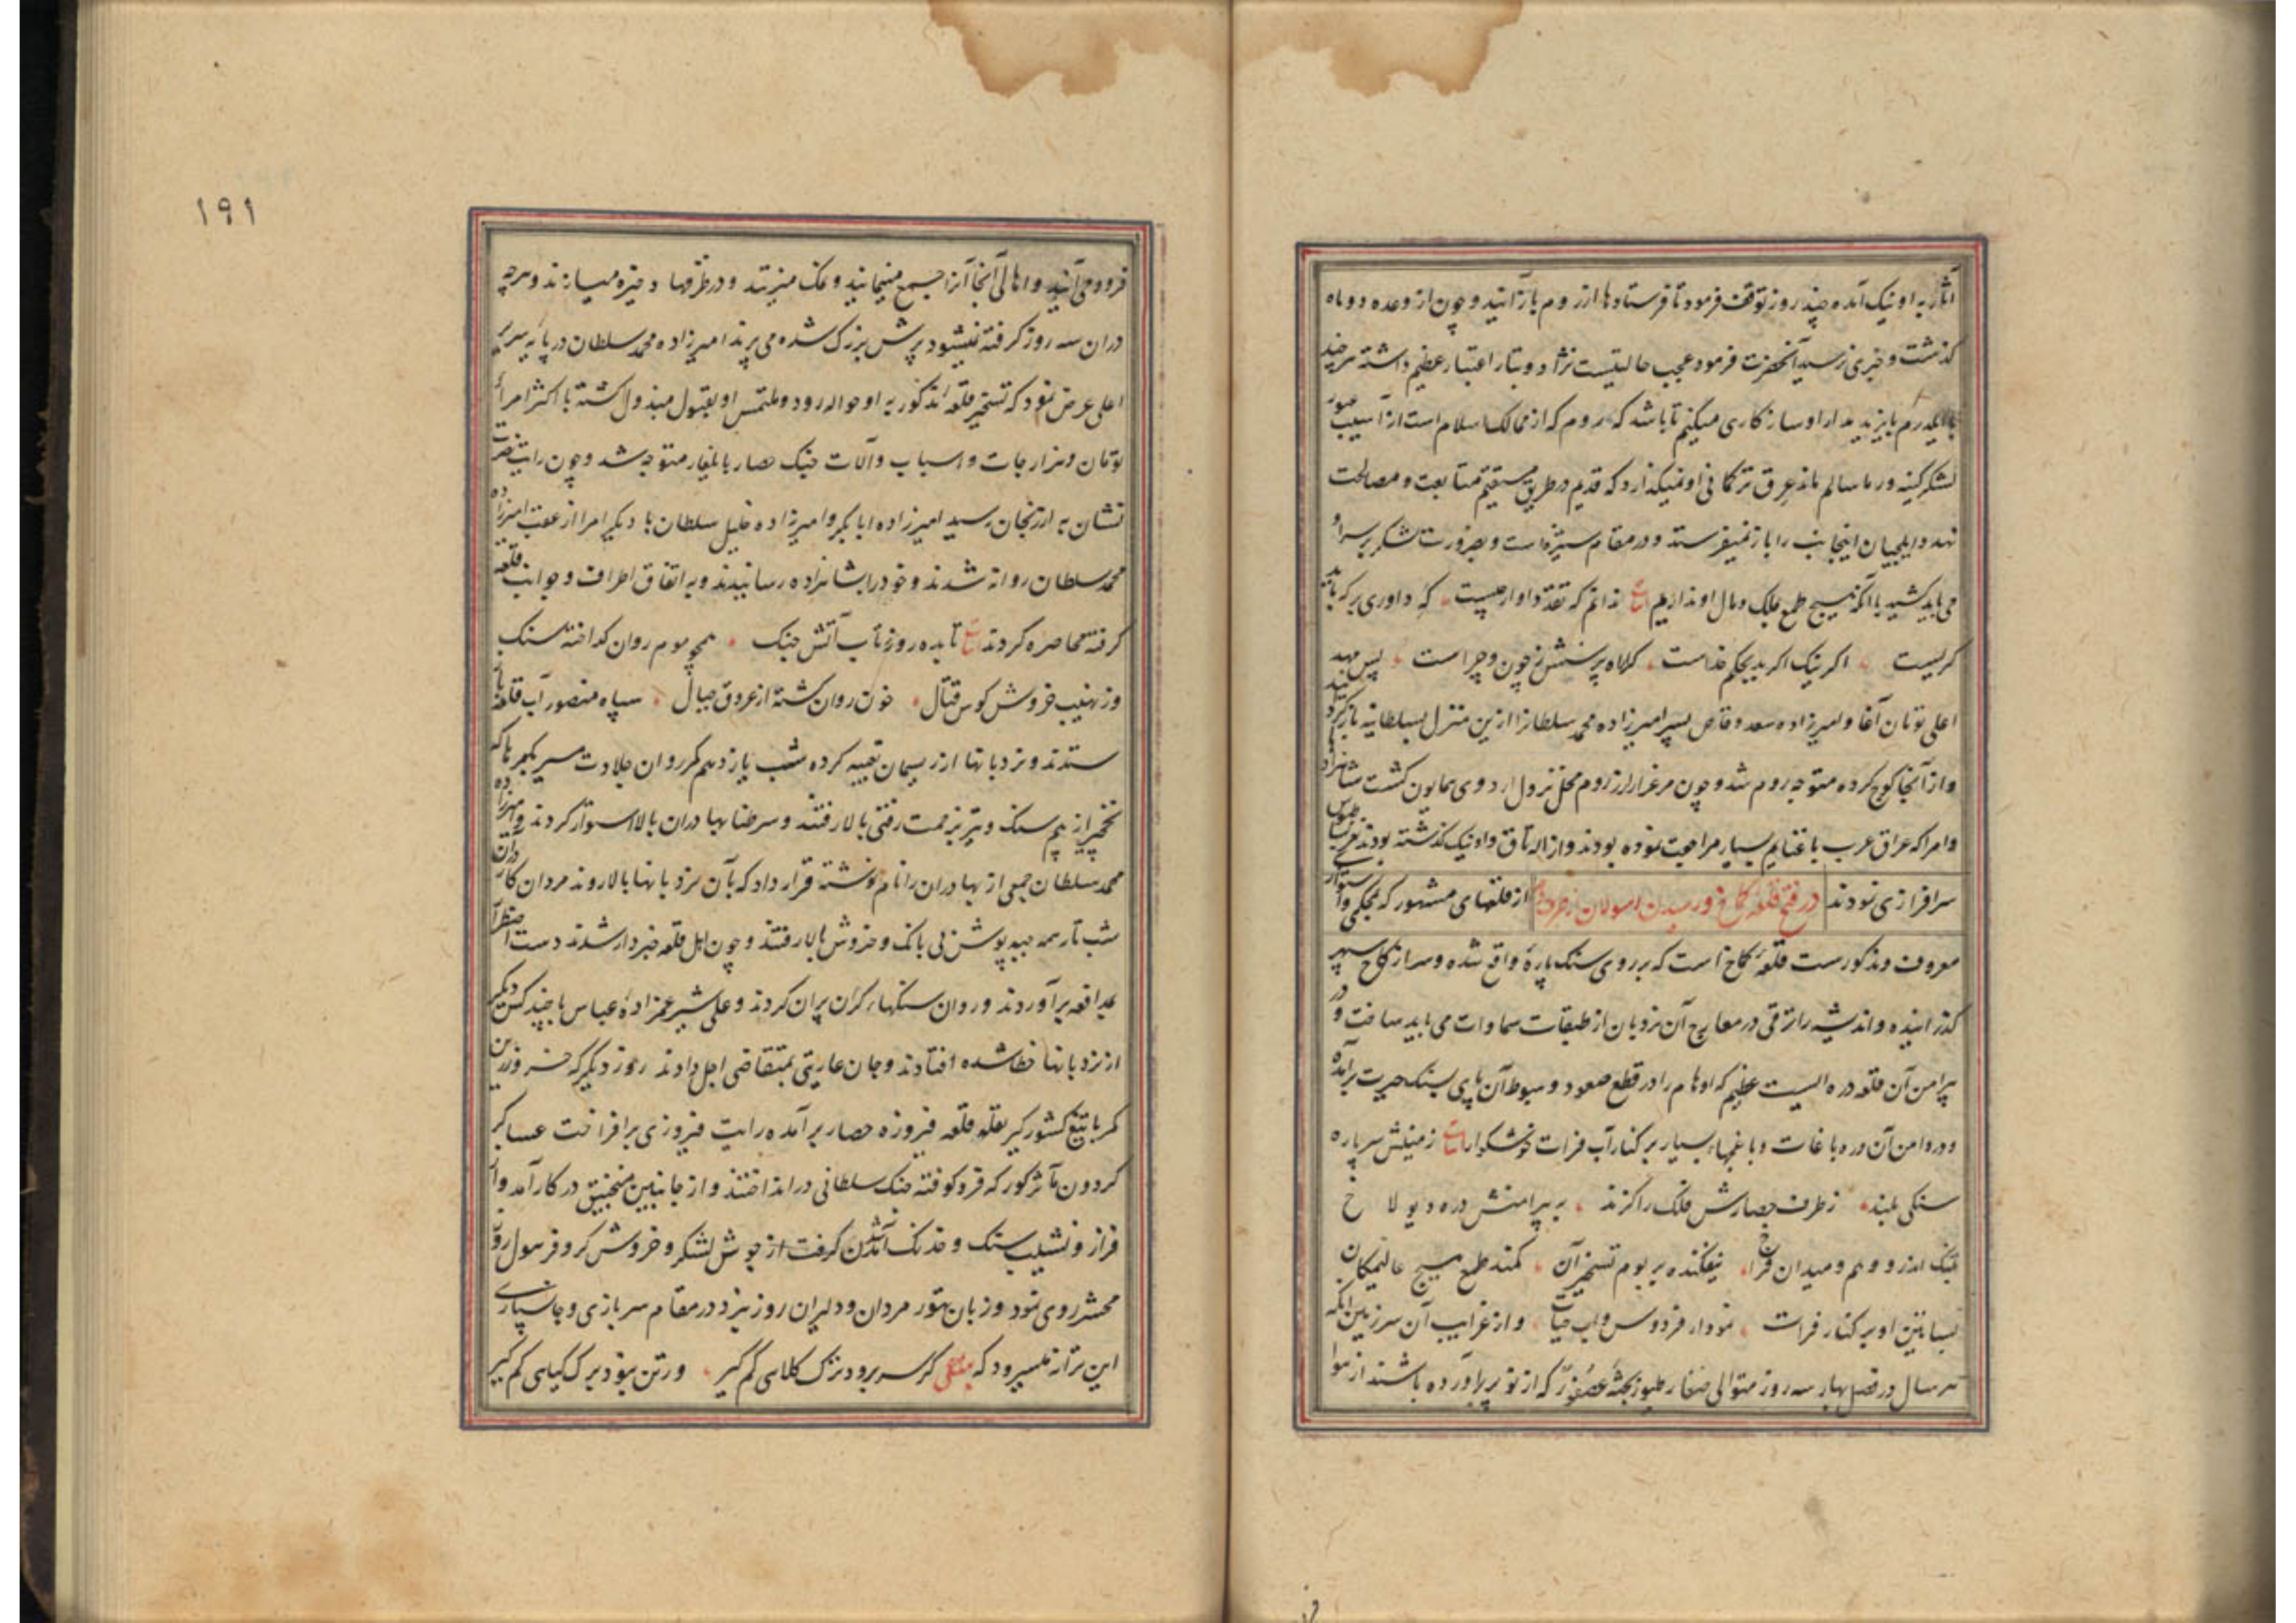 آثار به اونیک آمده چند روز توقف فرمود تا فرستادها از روم باز آیند و چون از وعده دو ماه
کذشت و خبری نرسید آنحضرت فرمود عجب حالتیست نژاد و تبار اعتبار عظیم داشته هر چند
با ایلدرم بایزید بمدارا و سازکاری میکنیم تا باشد که روم که از ممالک اسلام است از آسیب عبور
لشکر کینه ور ما سالم ماند عرق ترکمانی او نمیکذارد که قدم در طریق مستقیم متابعت و مصالحت
نهد و ایلچیان اینجانب را باز نمیفرستد و در مقام ستیزه است و بضرورت لشکر بر سر او
می باید کشید با آنکه هیچ طمع ملک و مال او نداریم ندانم که تقدیر داوار چیست که داوری بر که باید
کریست اکر نیک اکر بد بحکم خداست کلاه پرسش ز چون و چراست پس مهد
اعلی تومان آغا و امیرزاده سعد وقاص پسر امیرزاده محمد سلطانرا ازین منزل بسلطانیه باز کردانید
و از آنجا کوچ کرده متوجه روم شد و چون مرغزار ارزروم محل نزول اردوی همایون کشت شاهزاده
و امرا که عراق عرب با غنایم بسیار مراجعت نموده بودند و از اله تاق و اونیک کذشته بودند
سرافرازی نمودند در فتح قلعه کماخ از قلعهای مشهور که بمحکمی و استواری
معروف و مذکورست قلعه کماخ است که بر روی سنک پارهٔ واقع شده و سر از کاخ سپهر
کذرانیده و اندیشه را ترقی در معارج آن نردبان از طبقات سماوات می باید ساخت و در
پیرامن آن قلعه دره ایست عظیم که اوهام را در قطع صعود و هبوط آن پای بسنک حیرت برآمده
و در دامن آن دره باغات و باغچهاء بسیار بر کنار آب فرات خوشکوار ابیات زمینش سر پاره
سنکی بلند ز طرف حصارش فلک را کزند به پیرامنش دره دیولاخ
تنک اندرو وهم و میدان فراخ نیفکنده بر بوم تسخیر آن کمند طمع هیچ عالیمکان
بساتین او بر کنار فرات نمودار فردوس و آب حیات و از غرایب آن سرزمین آنکه
هر سال در فصل بهار سه روز متوالی صغار طیور بجثهٔ عصفور که از نو پر برآورده باشند از هوا
۱۹۱
فرود می آیند و اهالی آنجا آنرا جمع مینمایند و نمک میزنند و در ظرفها ذخیره میسازند و هر چه
در آن سه روز کرفته نمیشود پرش بزرک شده می پرند امیرزاده محمد سلطان در پایه سریر
اعلی عرض نمود که تسخیر قلعه مذکور به او حواله رود و ملتمس او بقبول مبذول کشته با اکثر امراء
تومان و هزارجات و اسباب و آلات جنک حصار بایلغار متوجه شد و چون رایت نصرت
نشان به ارزنجان رسید امیرزاده ابابکر و امیرزاده خلیل سلطان با دیکر امرا از عقب امیرزاده
محمد سلطان روانه شدند و خود را بشاهزاده رسانیدند و به اتفاق اطراف و جوانب قلعه
کرفته محاصره کردند تا بده روز تاب آتش جنک همچو موم روان کداخته سنک
وز نهیب خروش کوس قتال خون روان کشته از عروق جبال سپاه منصور آب قلعه
ستدند و نردبانها از ریسمان تعبیه کرده شب یازدهم مکرروان جلادت سیر بکمرها که
نخجیر از بیم سنک و تیر بزحمت رفتی بالا رفتند و سر طنابها در آن بالا استوار کردند و امیرزاده
محمد سلطان جمعی از بهادران را نام نوشته قرار داد که بآن نردبانها بالا روند مردان کار در آن
شب تار همه جیبه پوش بی بانک و خروش بالا رفتند و چون اهل قلعه خبردار شدند دست اضطرار
بمدافعه برآوردند و روان سنکهاء کران پران کردند و علی شیر عمزادهٔ عباس با چند کس دیکر
از نردبانها خطا شده افتادند و جان عاریتی بمتقاضی اجل دادند روز دیکر که خسرو زرین
کمر با تیغ کشورکیر بقله قلعه فیروزه حصار برآمده رایت فیروزی برافراخت عساکر
کردون مآثر کورکه فرو کوفته جنک سلطانی در انداختند و از جانبین منجنیق در کار آمد و از
فراز و نشیب سنک و خدنک آمد شدن کرفت از جوش لشکر و خروش کر و فر هول روز
محشر روی نمود و زبان تهور مردان و دلیران روز نبرد در مقام سربازی و جانسپاری
این ترانه میسرود که کر سر برود ترک کلاهی کم کیر ور تن نبود برک کیاهی کم کیر